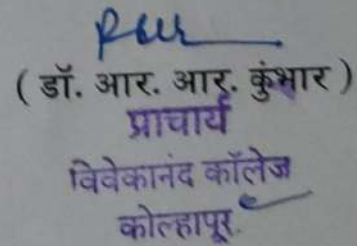 ( डॉ. आर. आर. कुंभार )
प्राचार्य
विवेकानंद कॉलेज
कोल्हापूर.